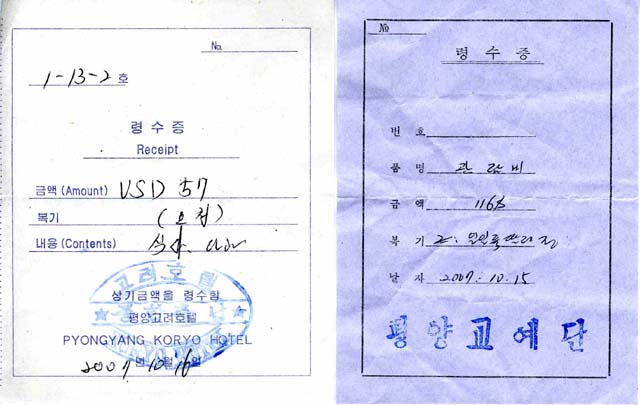 No.
1-13-2 호
령 수 증
Receipt
금액 (Amount) USD 57
복기
내용 (Contents)
고려호텔
상기금액을 령수함
평양고려호텔
PYONGYANG KORYO HOTEL
2007 년 10 월 16 일
№
령 수 증
번 호
품 명 관람비
금 액 116$
복 기
날 자 2007. 10. 15
평양교예단